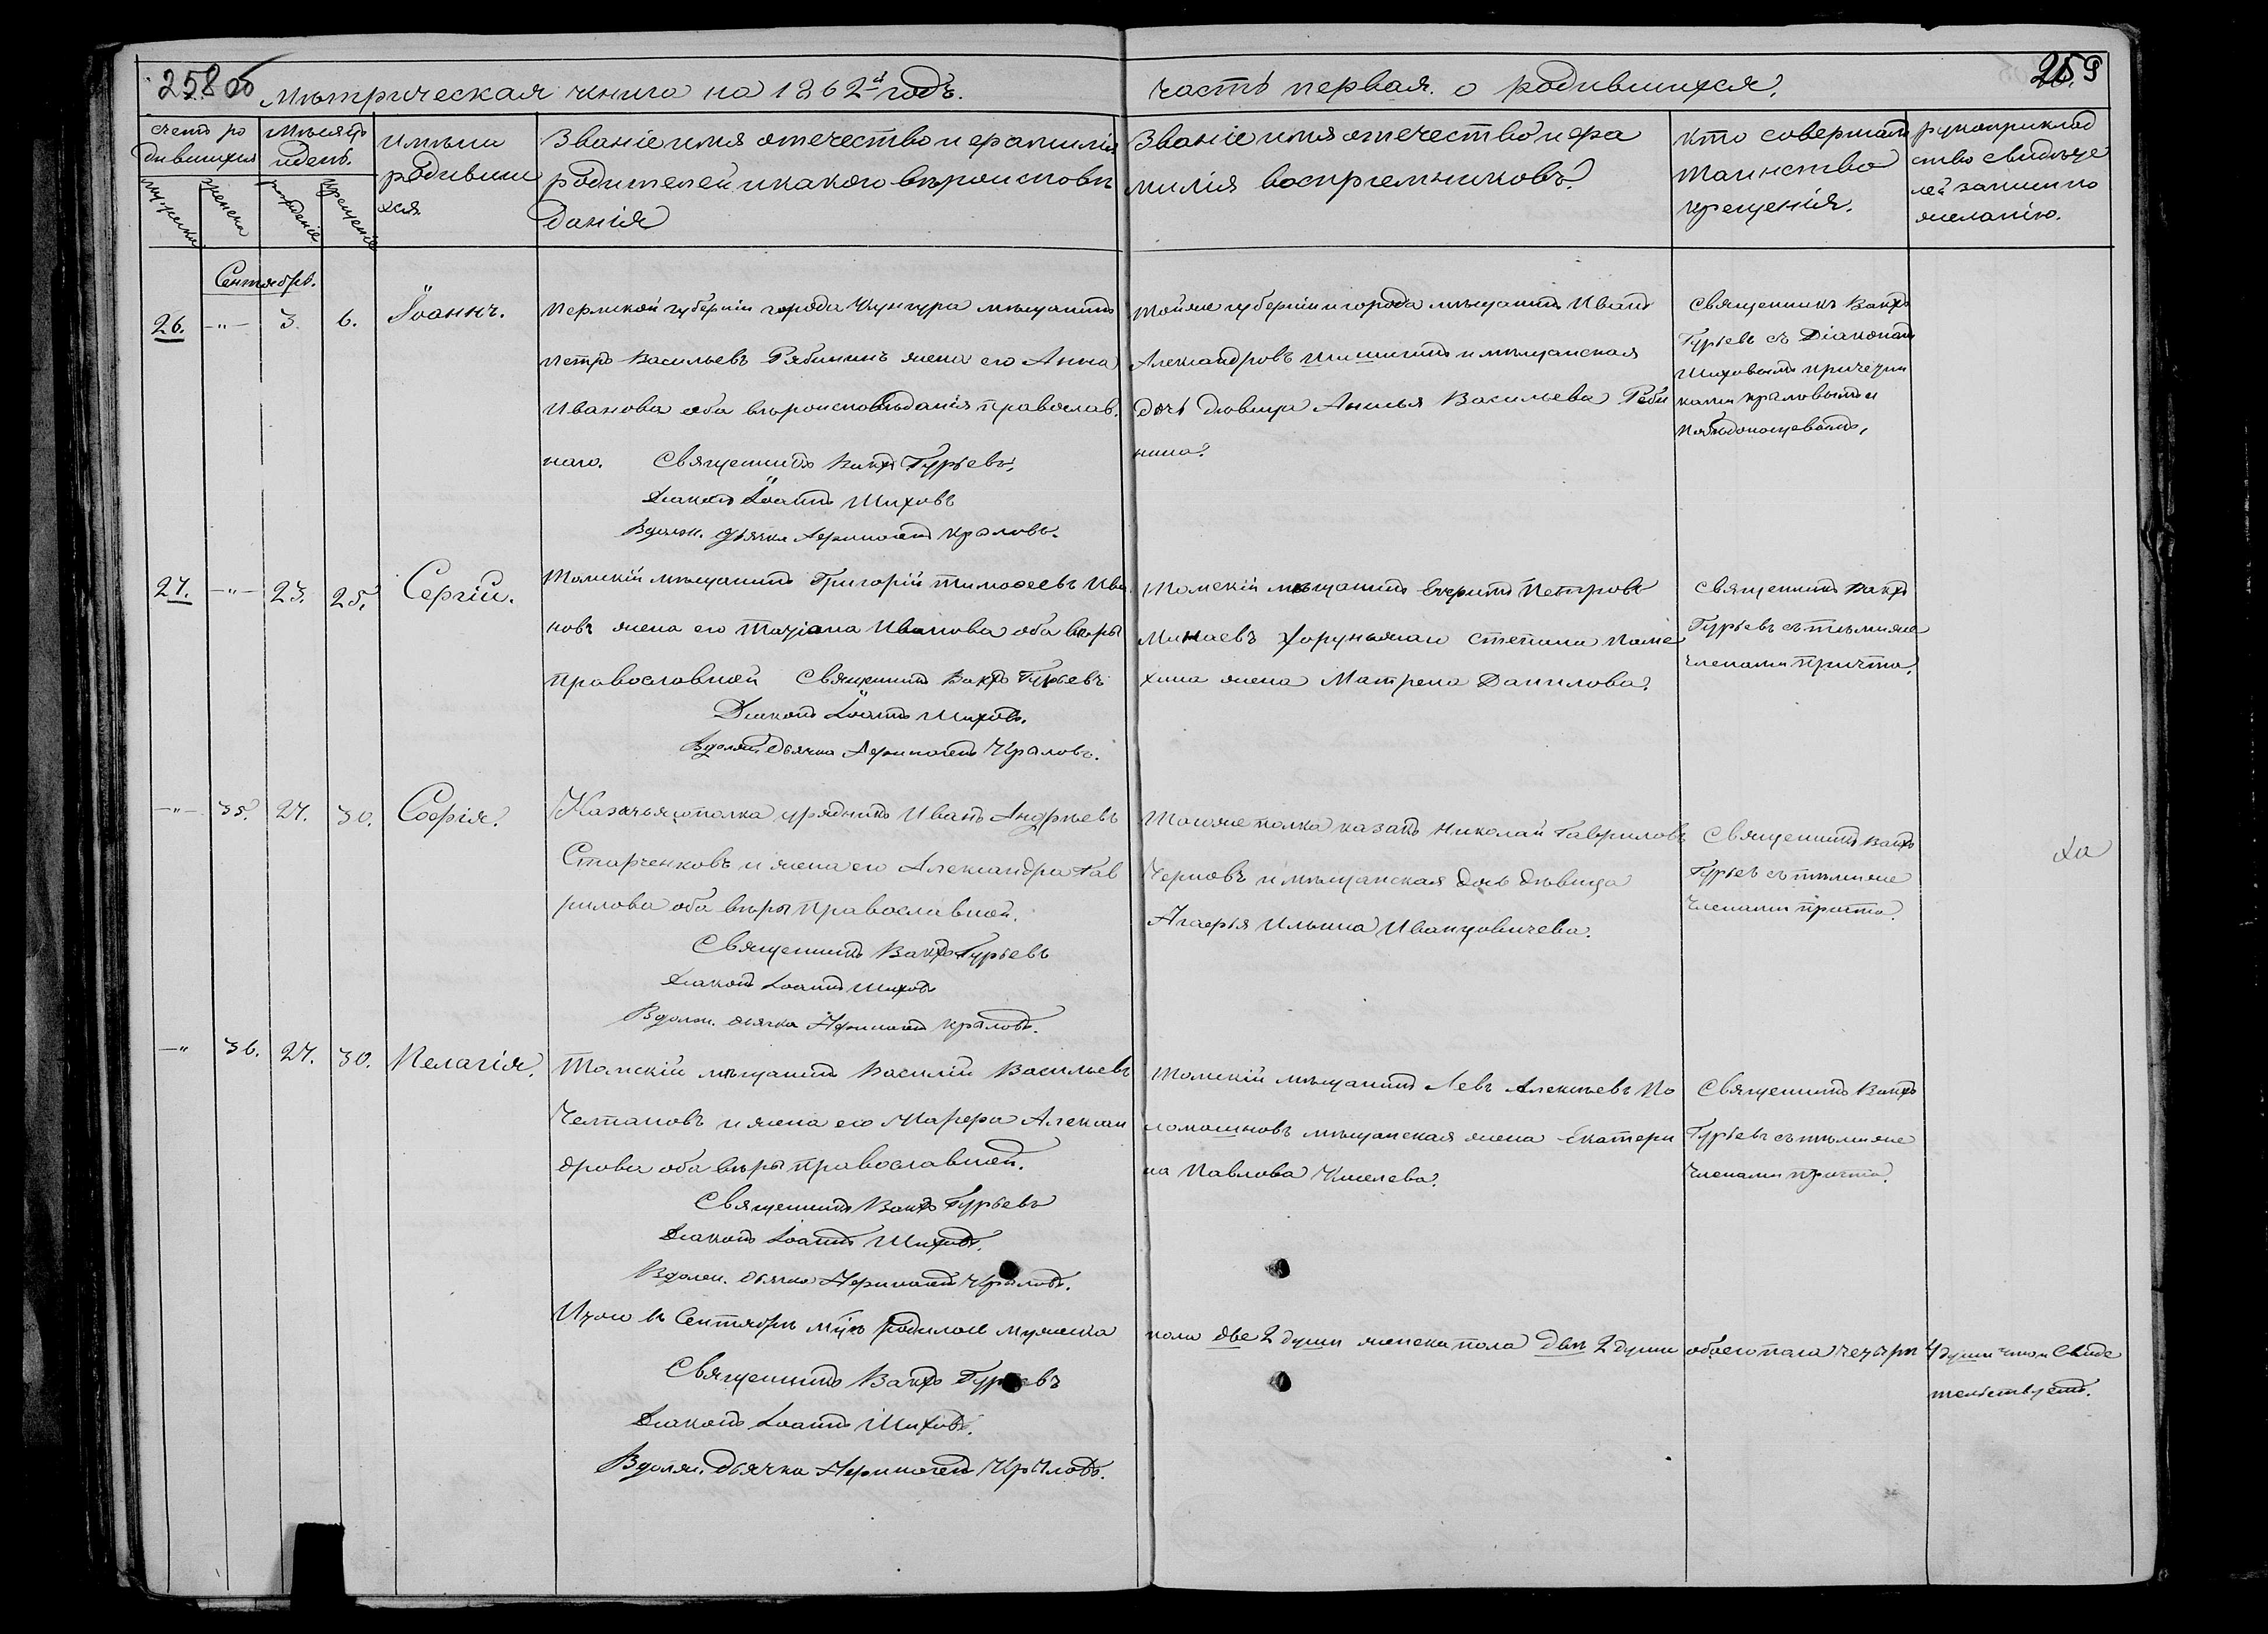 258 об
Мѣтрическая книга на 1862й годъ.
часть первая о родившихся.
259
счетъ ро
дившихся
мужеска
женска
Мѣсяцъ
и день.
рожденіе
крещеніе
Имѣна
родивши
хся
Званіе имя отечество и фамилія
родителей и какого вѣроисповѣ
данія
Званіе имя отечество и фа
милія воспріемниковъ.
кто совершалъ
таинство
крещенія.
рукоприклад
ство свидѣте
лей записи по
желанію.
Сентябрь.
26. -"- 3. 6. Іоаннъ.
Пермской губерніи города Кунгура мѣщанинъ
Петръ Васильевъ Рябининъ жена его Анна
Иванова оба вѣроисповѣданія православ.
наго. Священникъ Вакхъ Гурьевъ,
Діаконъ Іоаннъ Шиховъ
В должн. дьячка Аѳиногенъ Крыловъ.
Той же губерніи и города мѣщанинъ Иванъ
Александровъ Шишигинъ и мѣщанская
дочь дѣвица Анисья Васильева Ряби
нина.
Священникъ Вакхъ
Гурьевъ съ Діакономъ
Шиховымъ причетни
ками Крыловымъ и
27. -"- 23. 25. Сергій.
Томскій мѣщанинъ Григорій Тимофеевъ Ива
новъ жена его Татіана Иванова оба вѣры
православной Священникъ Вакхъ Гурьевъ
Діаконъ Іоаннъ Шиховъ.
В должн. дьячка Аѳиногенъ Крыловъ.
Томскій мѣщанинъ Петровъ
Минаевъ Хорунжаго Степана
хина жена Матрена Данилова.
Священникъ Вакхъ
Гурьевъ съ тѣмиже
членами причта.
-"- 35. 27. 30. Софія.
Казачьяго полка урядникъ Иванъ Андреевъ
Старченковъ и жена его Александра Гав
рилова оба вѣры православной.
Священникъ Вакхъ Гурьевъ
Діаконъ Іоаннъ Шиховъ
В должн. дьячка Аѳиногенъ Крыловъ.
Тогоже полка казакъ Николай Гавриловъ
Черновъ и мѣщанская дочь дѣвица
Агафья Ильина Иванцовичева.
Священникъ Вакхъ
Гурьевъ съ тѣмиже
членами причта.
-" 36. 27. 30. Пелагія.
Томскій мѣщанинъ Василій Васильевъ
Челпановъ и жена его Марфа Алексан
дрова оба вѣры православной.
Священникъ Вакхъ Гурьевъ
Діаконъ Іоаннъ Шиховъ.
В должн. дьячка Аѳиногенъ Крыловъ.
Томскій мѣщанинъ Левъ Алексѣевъ По
ломошновъ мѣщанская жена Екатери
на Павлова Киселева.
Священникъ Вакхъ
Гурьевъ съ тѣмиже
членами причта.
Итого въ Сентябрѣ м-цѣ родилось мужеска
пола две 2 души женска пола двѣ 2 души обоего пола четыре 4 души въ томъ свиде
тельствуемъ.
Священникъ Вакхъ Гурьевъ
Діаконъ Іоаннъ Шиховъ.
В должн. дьячка Аѳиногенъ Крыловъ.